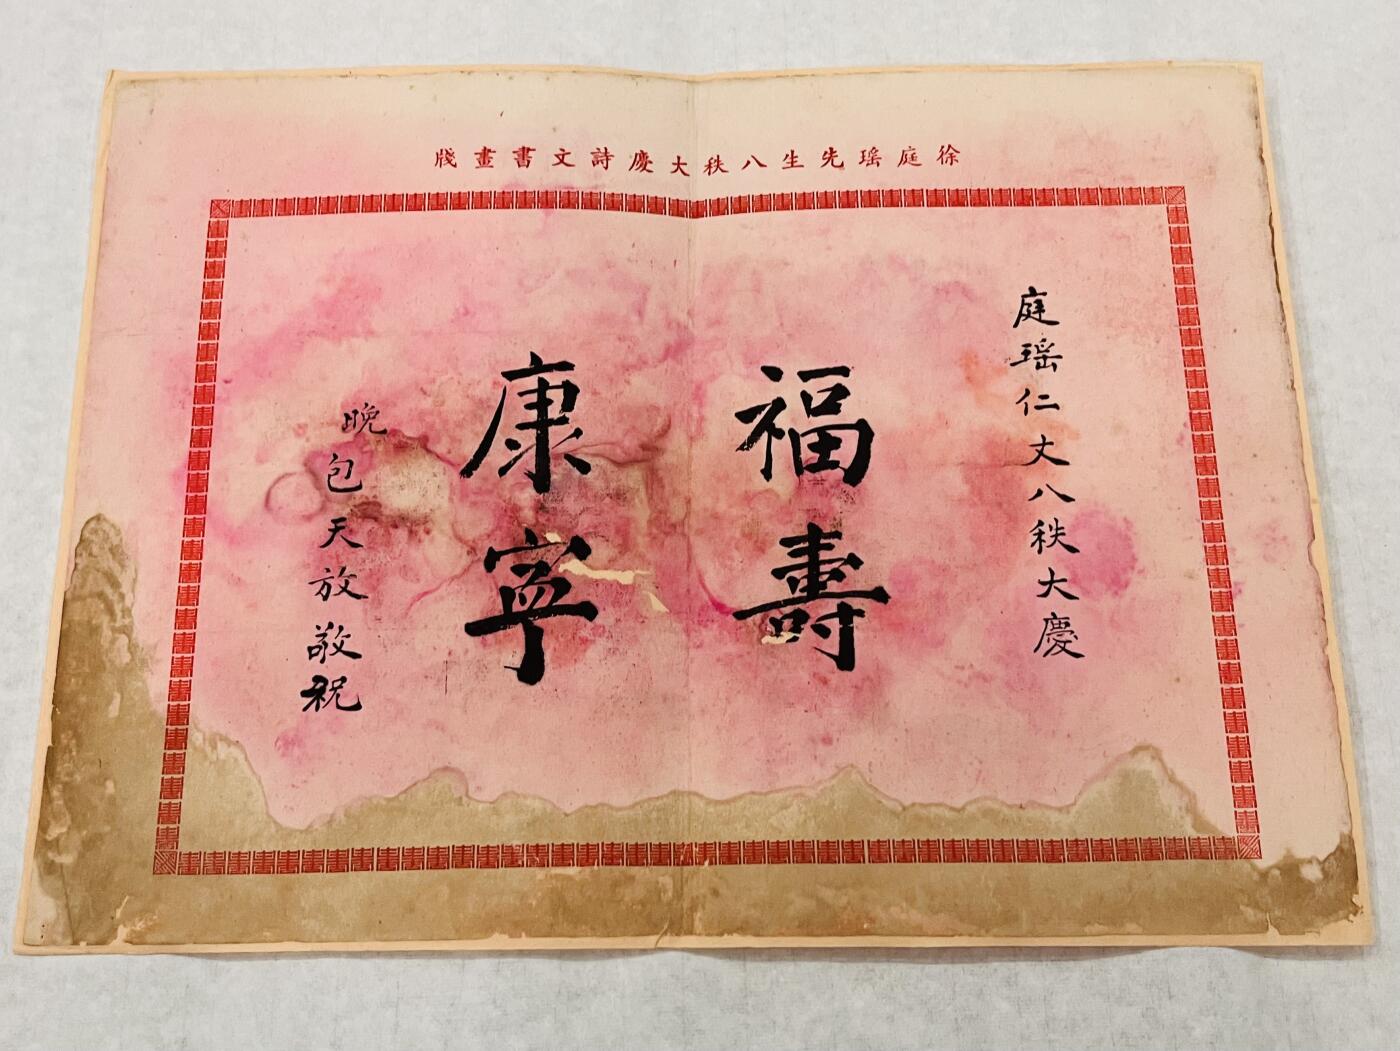 徐庭瑶先生八秩大慶詩文書畫牋
庭瑶仁丈八秩大慶
福壽
康寧
晚包天放敬祝